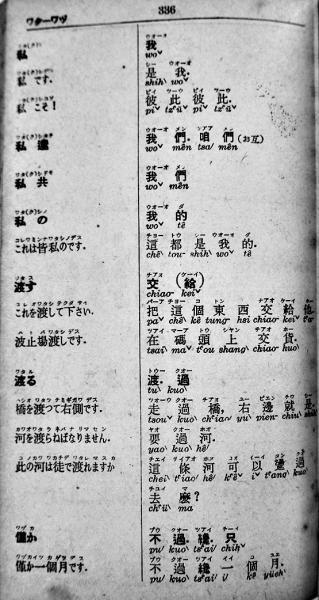 336
ワタ―ワヅ
私 我
wo
私 です. 是 我.
shih wo
私 こそ! 彼 此 彼 此.
pi tz'ŭ pi tz'ŭ
私 達 我 們. 咱 們 (お互)
wo mên tsa mên
私 共 我 們
wo mên
私 の 我 的
wo tê
コレワミンナワタシノデス
これは皆私のです. 這 都 是 我 的.
chê tou shih wo tê
ワタス
渡す 交 (給)
chiao kei
これを渡して下さい. 把 這 個 東 西 交 給 他
pa chê kê tung hsi chiao kei
波止場渡しです. 在 碼 頭 上 交 貨.
tsai ma t'ou shang chiao huo
ワタル
渡る 渡. 過
tu kuo
橋を渡つて右側です. 走 過 橋, 右 邊 就 是.
tsou kuo ch'iao yu pien chiu shih
河を渡らねばなりません. 要 過 河.
yao kuo ho
此の河は徒で渡れますか 這 條 河 可 以 蹚 過
chei t'iao hê k'ê i t'ang kuo
去 麼?
ch'ü ma
ワヅカ
僅か 不 過. 纔. 只
pu kuo ts'ai chih
僅か一個月です. 不 過 纔 一 個 月.
pu kuo ts'ai i kê yüeh